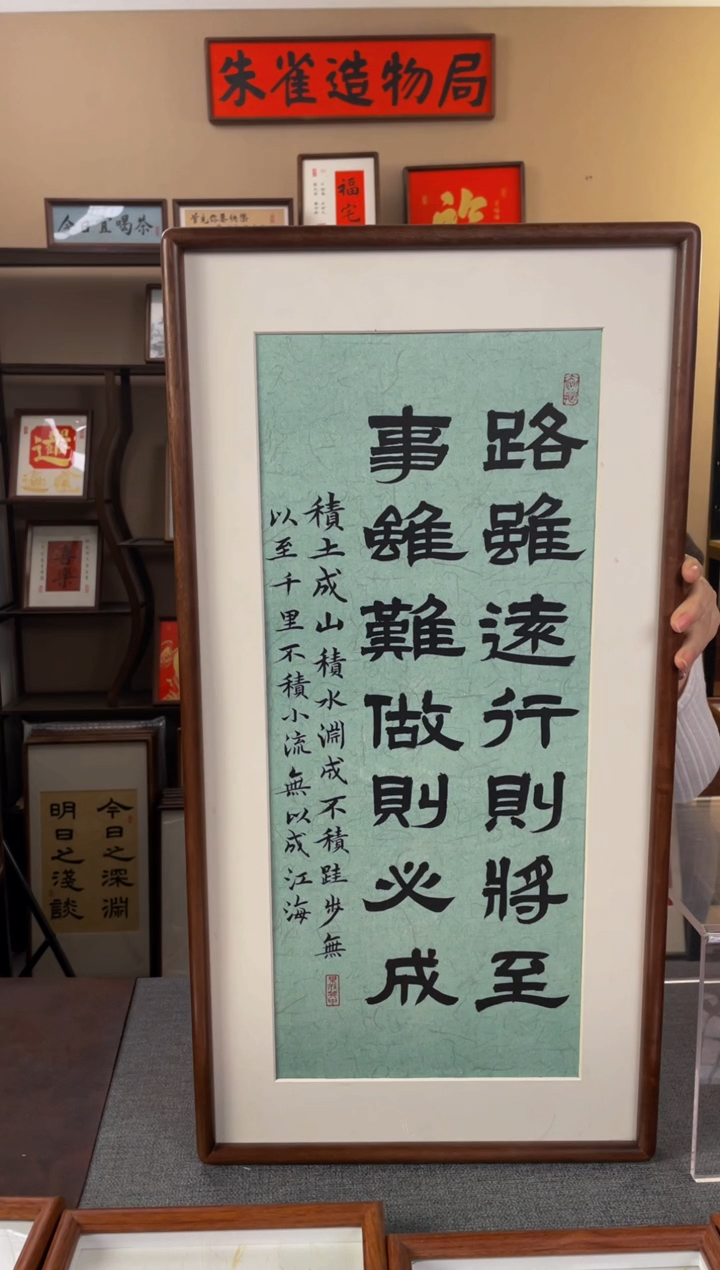 朱雀造物局
今日宜喝茶
首先你要快樂
福宅
路雖遠行則將至
事雖難做則必成
積土成山積水淵成不積跬步無
以至千里不積小流無以成江海
喜樂
今日之深淵
明日之淺談